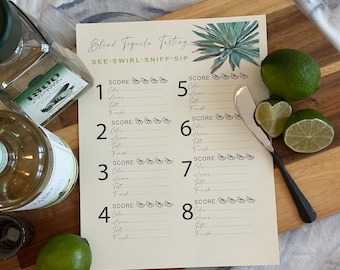 Blind Tequila Tasting
SEE-SWIRL-SNIFF-SIP
1 SCORE
Color
Aroma
Taste
Finish
2 SCORE
Color
Aroma
Taste
Finish
3 SCORE
Color
Aroma
Taste
Finish
4 SCORE
Color
Aroma
Taste
Finish
5 SCORE
Color
Aroma
Taste
Finish
6 SCORE
Color
Aroma
Taste
Finish
7 SCORE
Color
Aroma
Taste
Finish
8 SCORE
Color
Aroma
Taste
Finish
1800